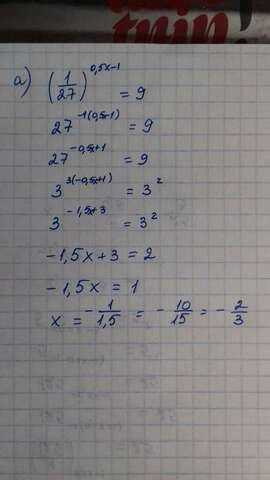 а) (1/27)^(0,5x-1) = 9
27^(-1(0,5x-1)) = 9
27^(-0,5x+1) = 9
3^(3(-0,5x+1)) = 3^2
3^(-1,5x+3) = 3^2
-1,5x+3 = 2
-1,5x = 1
x = -1/1,5 = -10/15 = -2/3